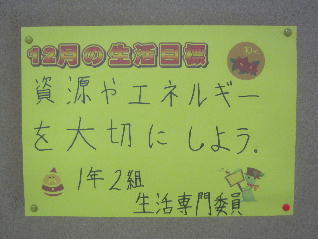 12月の生活目標
資源やエネルギー
を大切にしよう.
1年2組
生活専門委員